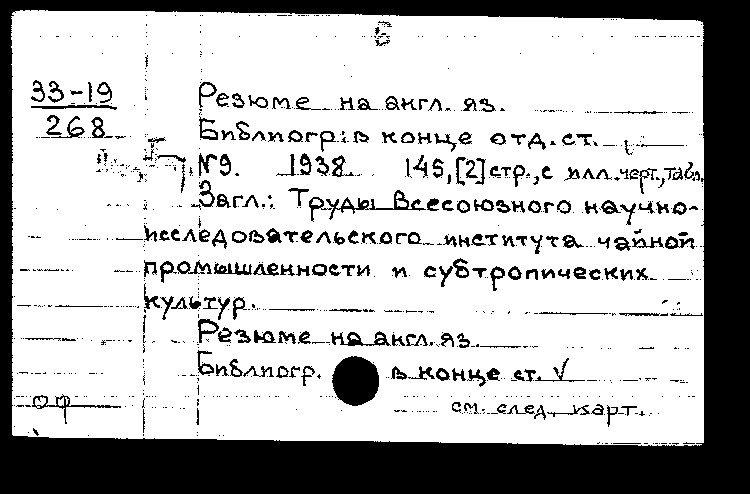 6
33-19
268
Резюме на англ. яз.
Библиогр: в конце отд. ст.
№9. 1938. 145, [2] стр., с илл. черт., табл.
Загл.: Труды Всесоюзного научно-
исследовательского института чайной
промышленности и субтропических
культур.
Резюме на англ. яз.
Библиогр. в конце ст. V
см. след. карт.
оф